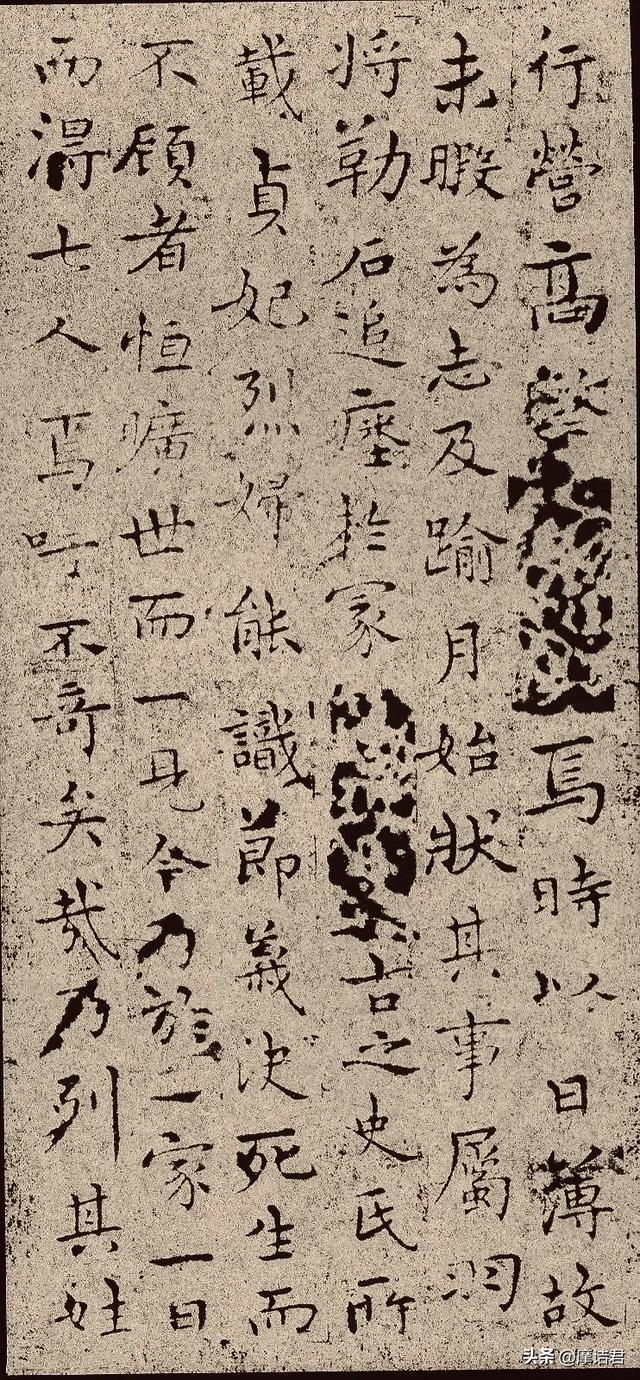 行營高焉時以日薄故
未暇為志及踰月始狀其事屬羽
將勒石追瘞於冢古之史氏所
載貞妃烈婦能識節義決死生而
不顧者恒曠世而一見今乃於一家一日
而得七人焉吁丕奇矣哉乃列其姓
头条 @摩诘君